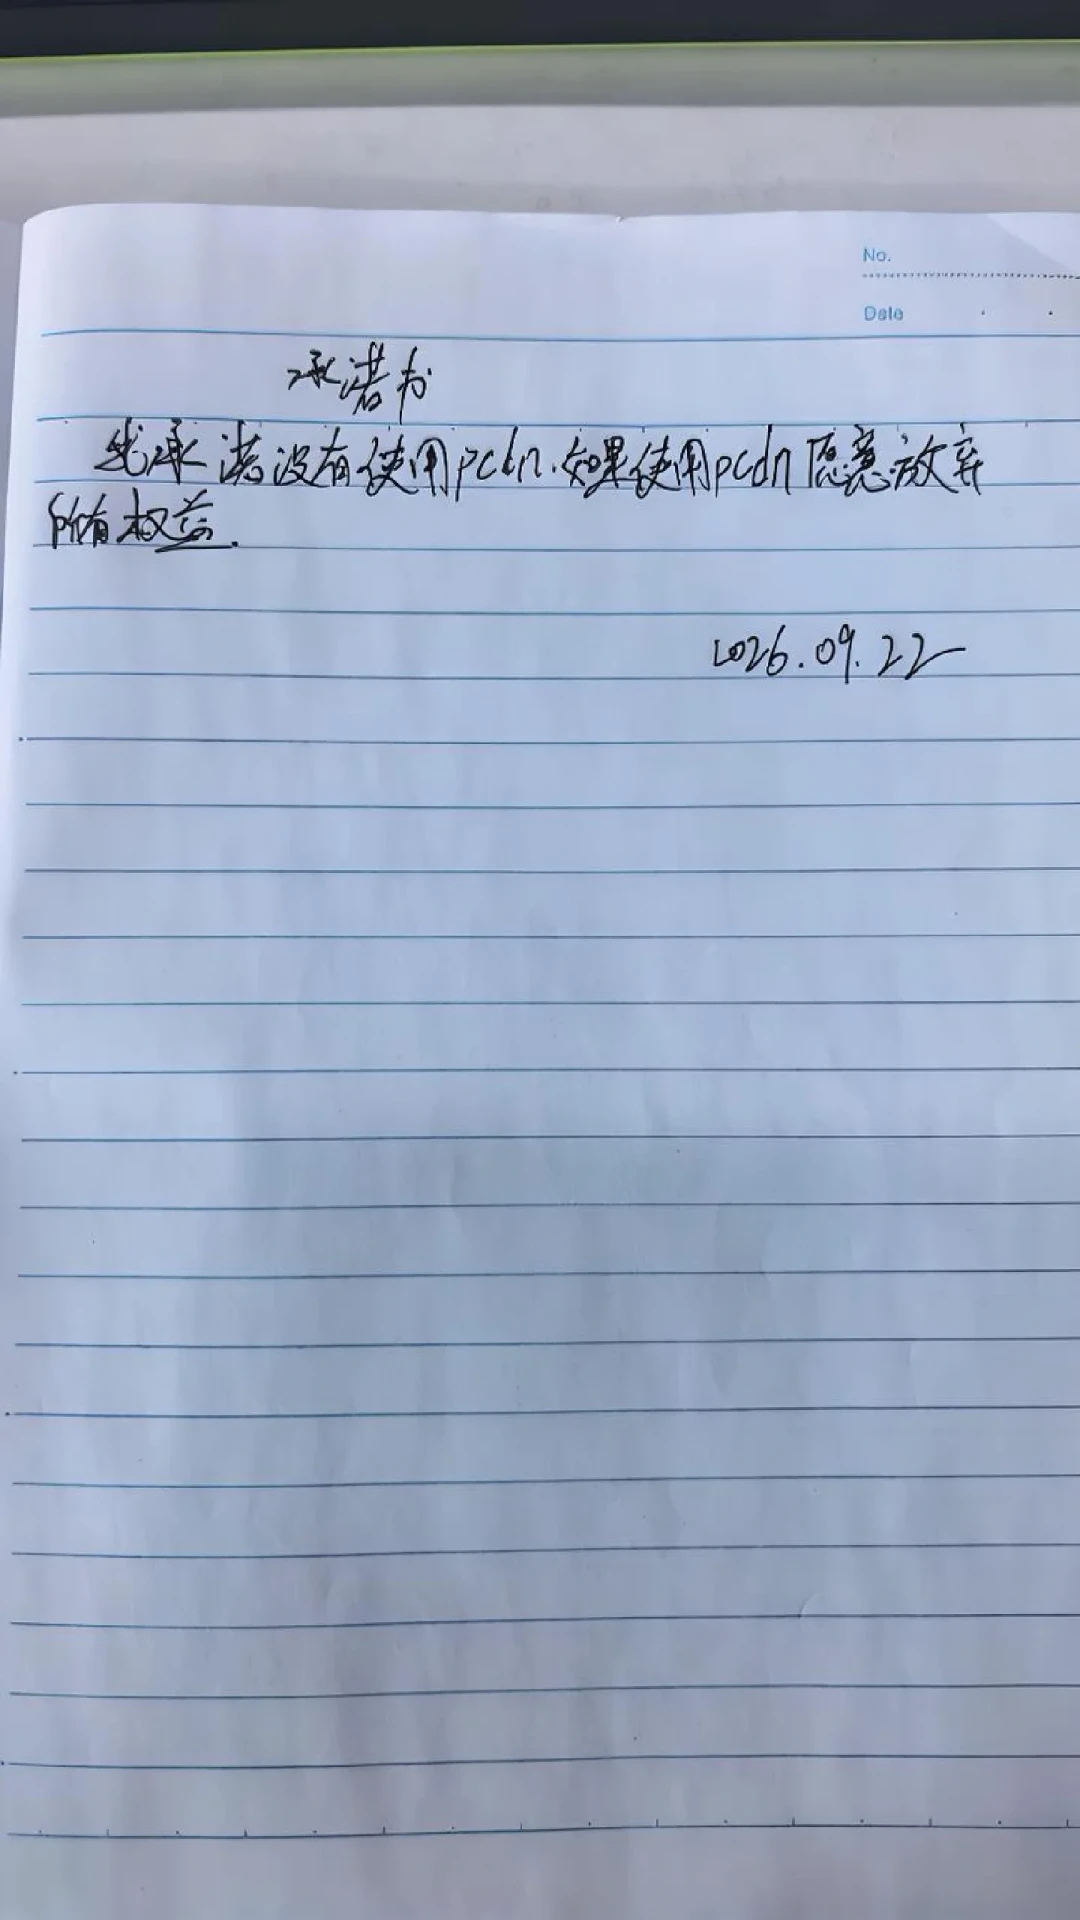 No.
Date
承诺书
我承诺没有使用pcdn.如果使用pcdn愿意放弃
所有权益.
2026.09.22